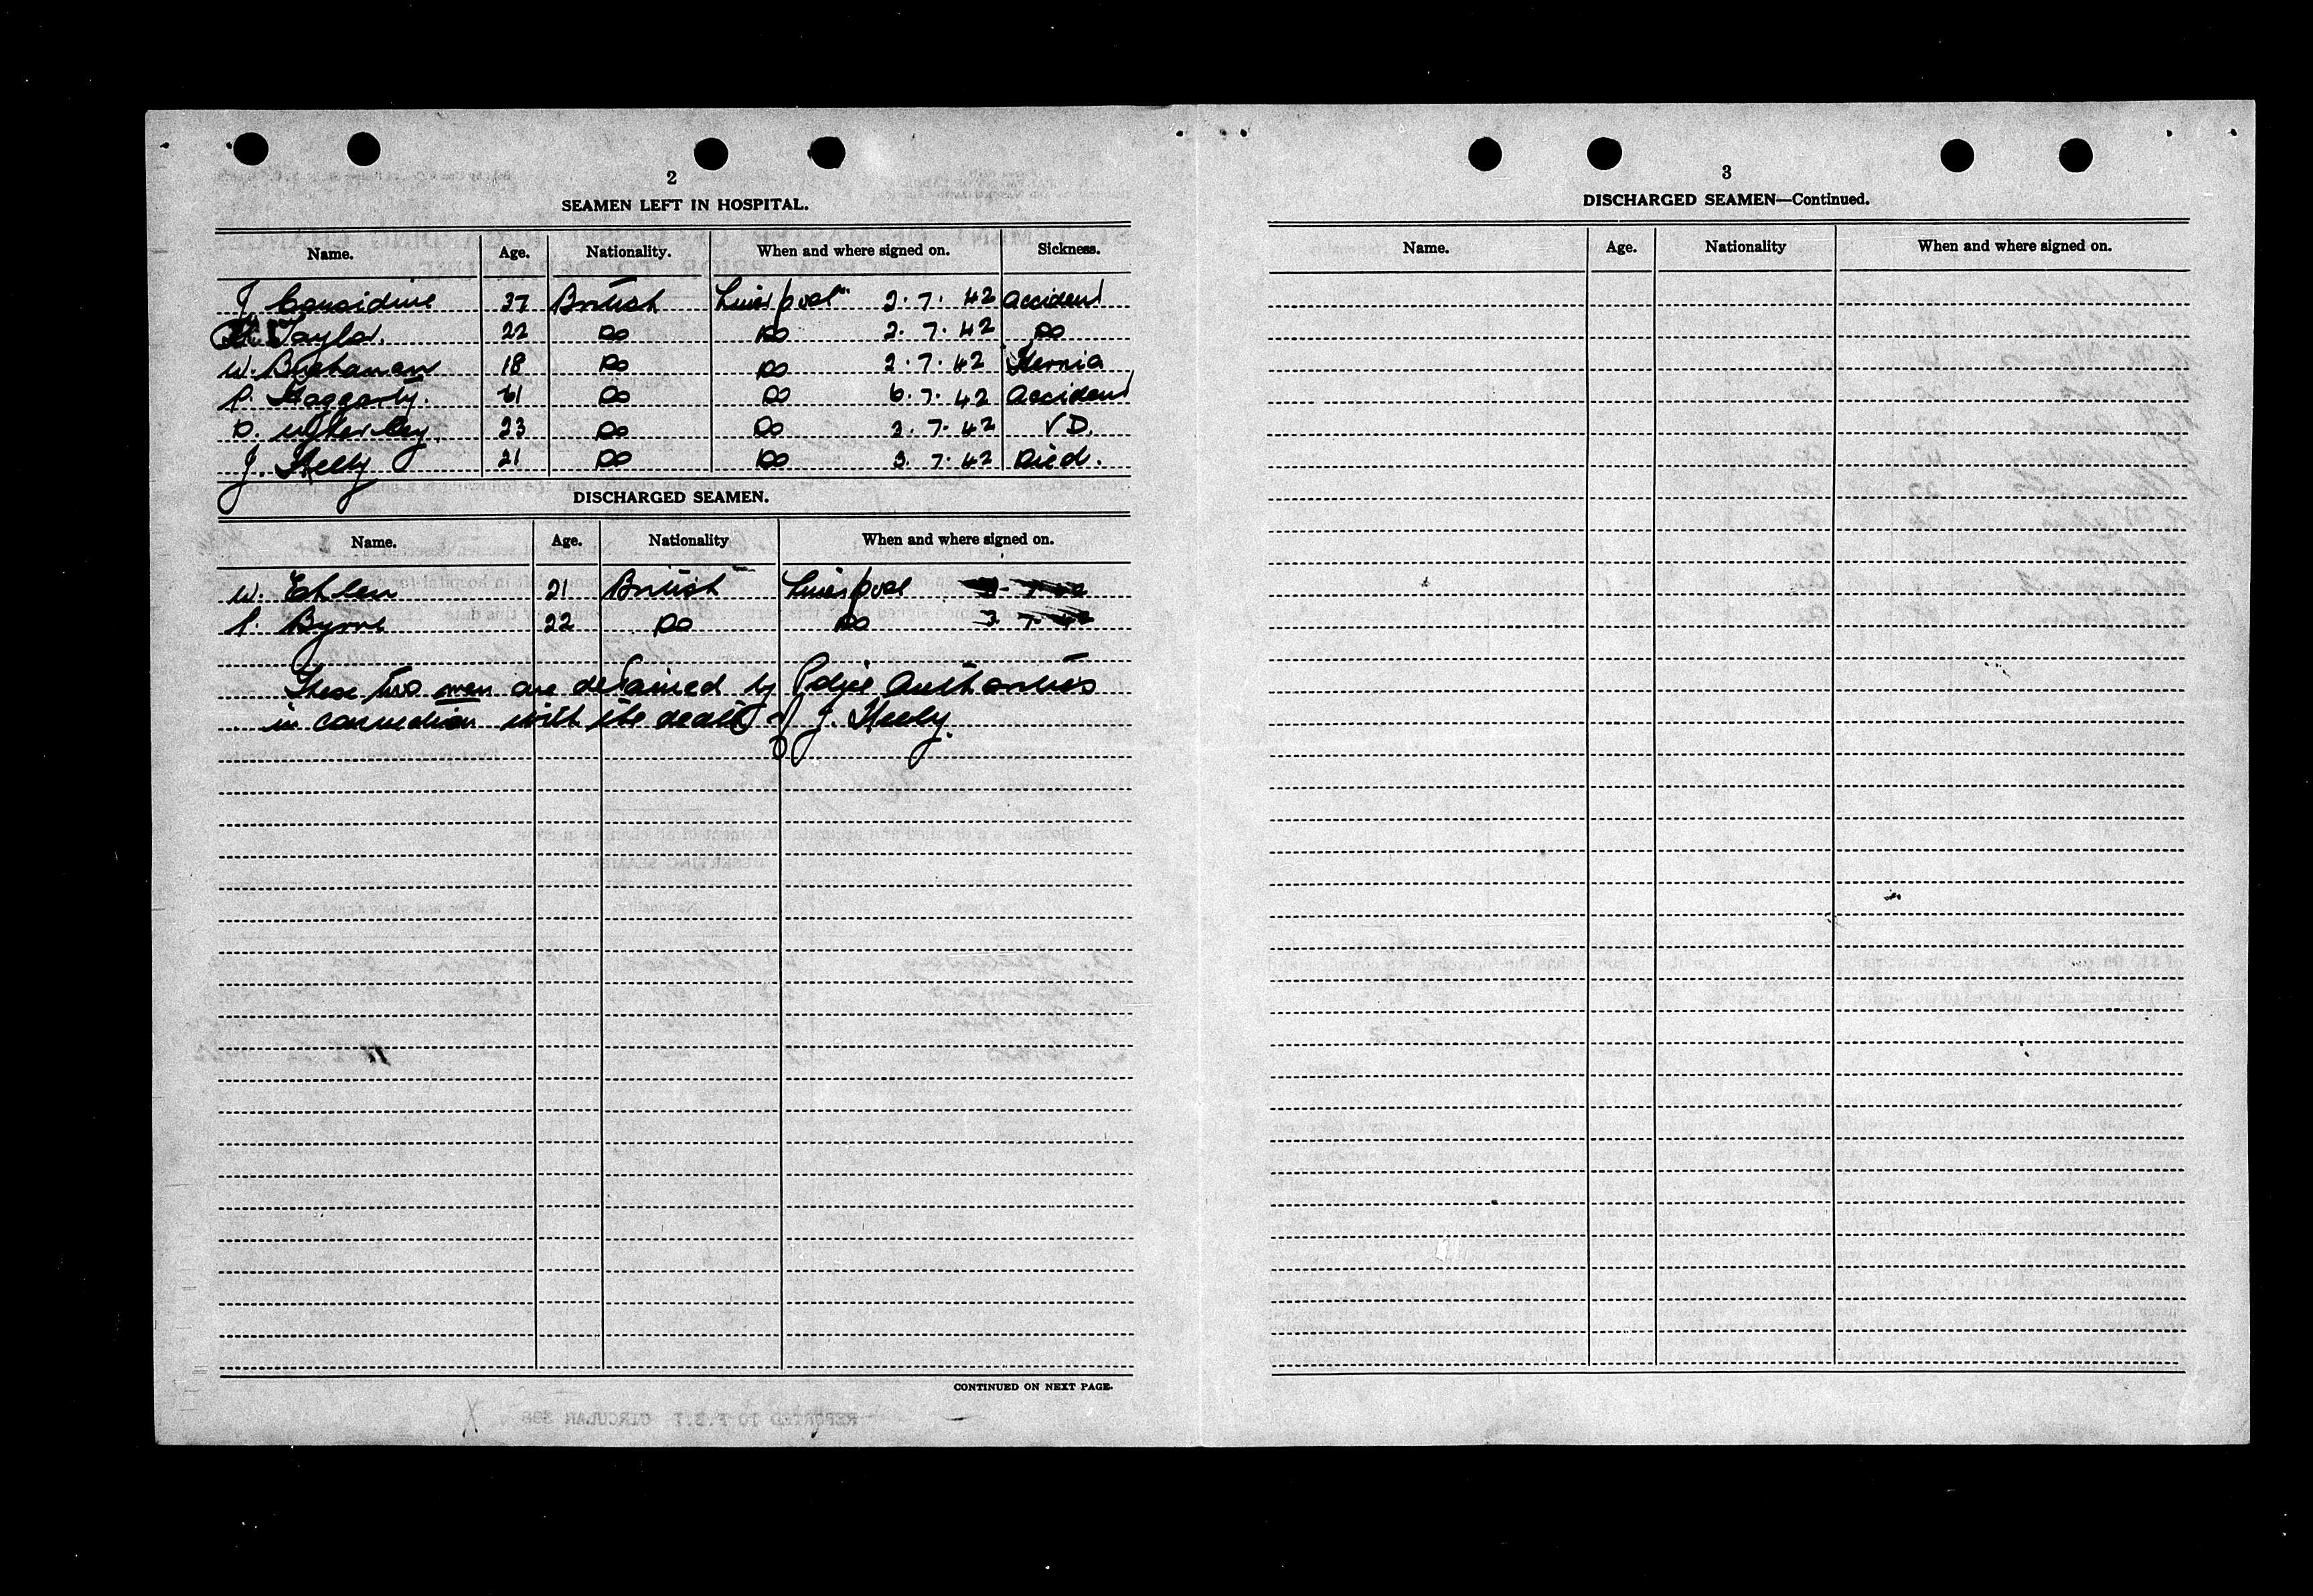 2
SEAMEN LEFT IN HOSPITAL.
Name. Age. Nationality. When and where signed on. Sickness.
J. Considine 37 British Liverpool 2.7.42 Accident
Taylor. 22 Do Do 2.7.42 Do
W. Buchanan 18 Do Do 2.7.42 Hernia
P. Haggarty. 61 Do Do 6.7.42 Accident
D. 23 Do Do 2.7.42 VD.
J. Kelly 21 Do Do 3.7.42 Died.
DISCHARGED SEAMEN.
Name. Age. Nationality When and where signed on.
W. Ehlen 21 British Liverpool
P. Byrne 22 Do Do
These two men are detained by Police Authorities
in connection with the death of J. Kelly.
CONTINUED ON NEXT PAGE.
REPORTED TO F.B.I. CIRCULAR 398
3
DISCHARGED SEAMEN—Continued.
Name. Age. Nationality When and where signed on.